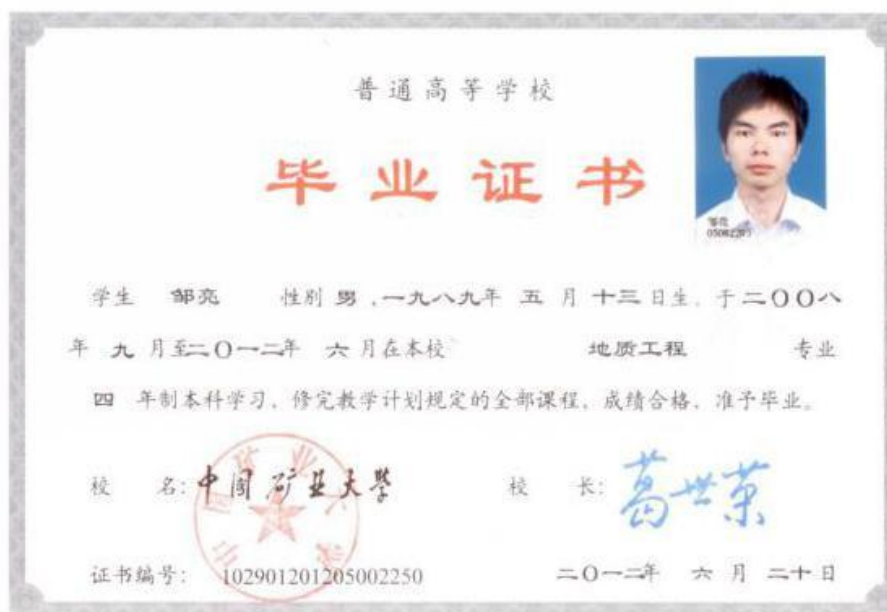 普通高等学校
毕业证书
邹亮
学生 邹亮 性别 男 ,一九八九年 五 月 十三 日生, 于二〇〇八
年 九 月至二〇一二年 六 月在本校 地质工程 专业
四 年制本科学习, 修完教学计划规定的全部课程, 成绩合格, 准予毕业。
校 名: 中国矿业大学 校 长: 葛世荣
证书编号: 102901201205002250 二〇一二年 六 月 二十日